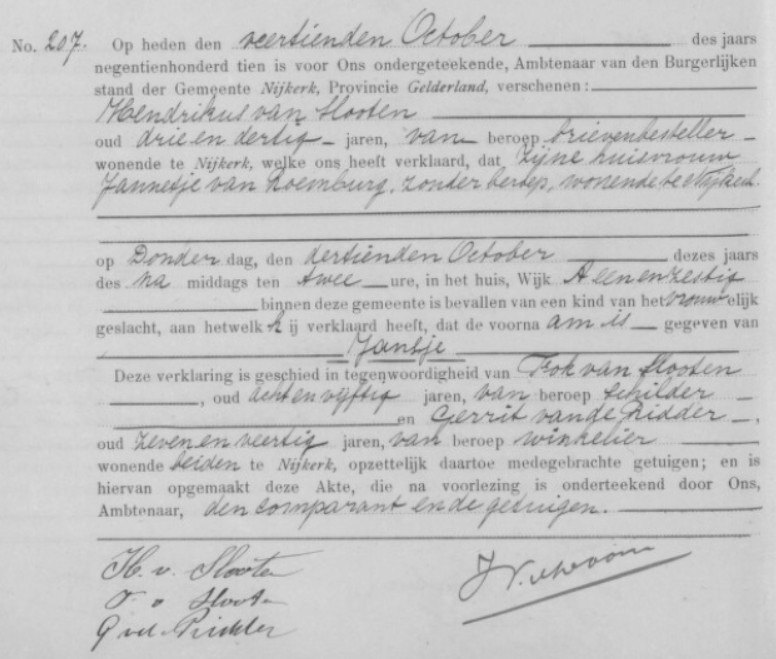 No. 207. Op heden den veertienden October des jaars
negentienhonderd tien is voor Ons ondergeteekende, Ambtenaar van den Burgerlijken
stand der Gemeente Nijkerk, Provincie Gelderland, verschenen:
Hendrikus van Slooten
oud drie en dertig jaren, van beroep brievenbesteller
wonende te Nijkerk, welke ons heeft verklaard, dat zijne huisvrouw
Jannetje van Roemburg, zonder beroep, wonende te Nijkerk.
op Donderdag, den dertienden October dezes jaars
des na middags ten twee ure, in het huis, Wijk A een en zestig
binnen deze gemeente is bevallen van een kind van het vrouwelijk
geslacht, aan hetwelk hij verklaard heeft, dat de voornaam is gegeven van
Jantje
Deze verklaring is geschied in tegenwoordigheid van van Slooten
, oud acht en vijftig jaren, van beroep schilder
en Gerrit van de Ridder,
oud zeven en veertig jaren, van beroep winkelier
wonende beiden te Nijkerk, opzettelijk daartoe medegebrachte getuigen; en is
hiervan opgemaakt deze Akte, die na voorlezing is onderteekend door Ons,
Ambtenaar, den comparant en de getuigen.
H. v. Slooten
v Slooten
G vd Ridder